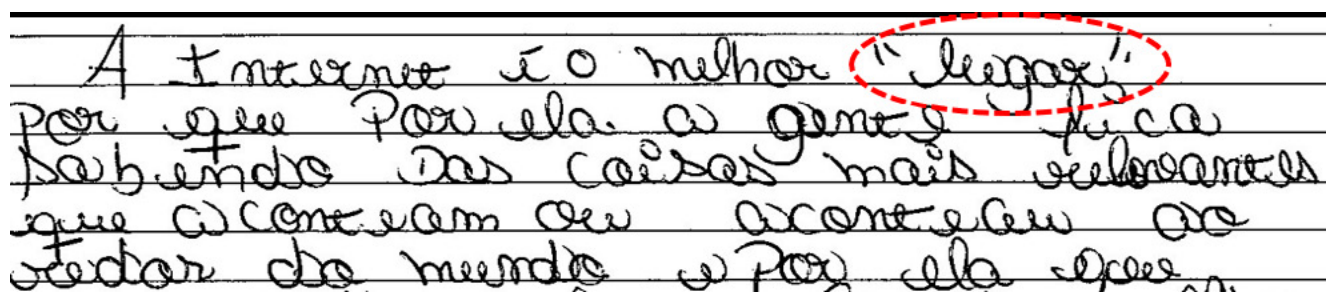 A Internet é o melhor "lugar",
por que Por ela a gente fica
sabendo Das coisas mais relevantes
que aconteam ou aconteceu ao
redor do mundo e Por ela que